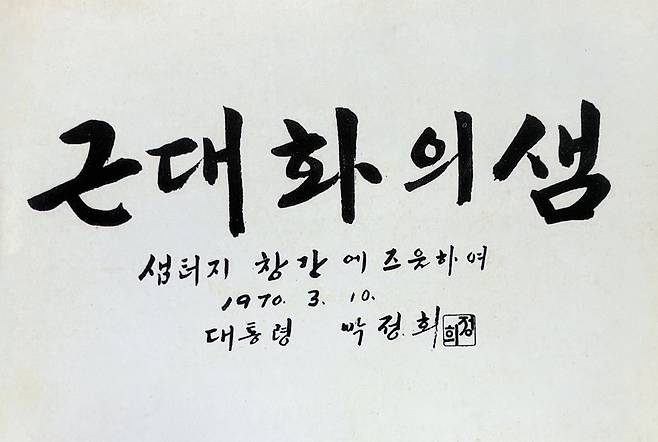 근대화의 샘
샘터지 창간에 즈읏하여
1970. 3. 10.
대통령 박정희 정희